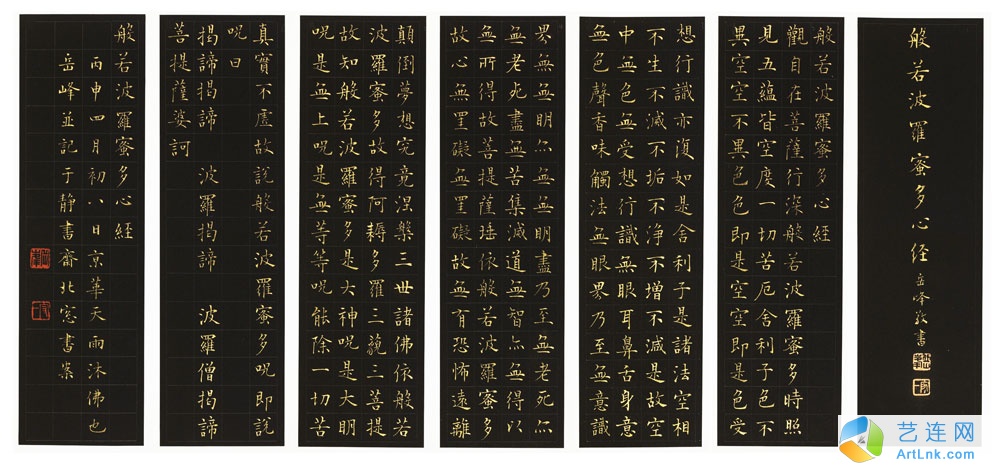 般若波羅蜜多心经
岳峰敬書
般若波羅蜜多心經
觀自在菩薩行深般若波羅蜜多時照
見五蘊皆空度一切苦厄舍利子色不
異空空不異色色即是空空即是色受
想行識亦復如是舍利子是諸法空相
不生不滅不垢不净不增不減是故空
中無色無受想行識無眼耳鼻舌身意
無色聲香味觸法無眼界乃至無意識
界無無明亦無無明盡乃至無老死亦
無老死盡無苦集滅道無智亦無得以
無所得故菩提薩埵依般若波羅蜜多
故心無罣礙無罣礙故無有恐怖遠離
顛倒夢想究竟涅槃三世諸佛依般若
波羅蜜多故得阿耨多羅三藐三菩提
故知般若波羅蜜多是大神呪是大明
呪是無上呪是無等等呪能除一切苦
真實不虛故說般若波羅蜜多呪即說
呪曰
揭諦揭諦 波羅揭諦 波羅僧揭諦
菩提薩婆訶
般若波羅蜜多心經
丙申四月初八日京華天雨沐佛也
岳峰並記于静書齋北窓書案
艺连网
ArtLnk.com